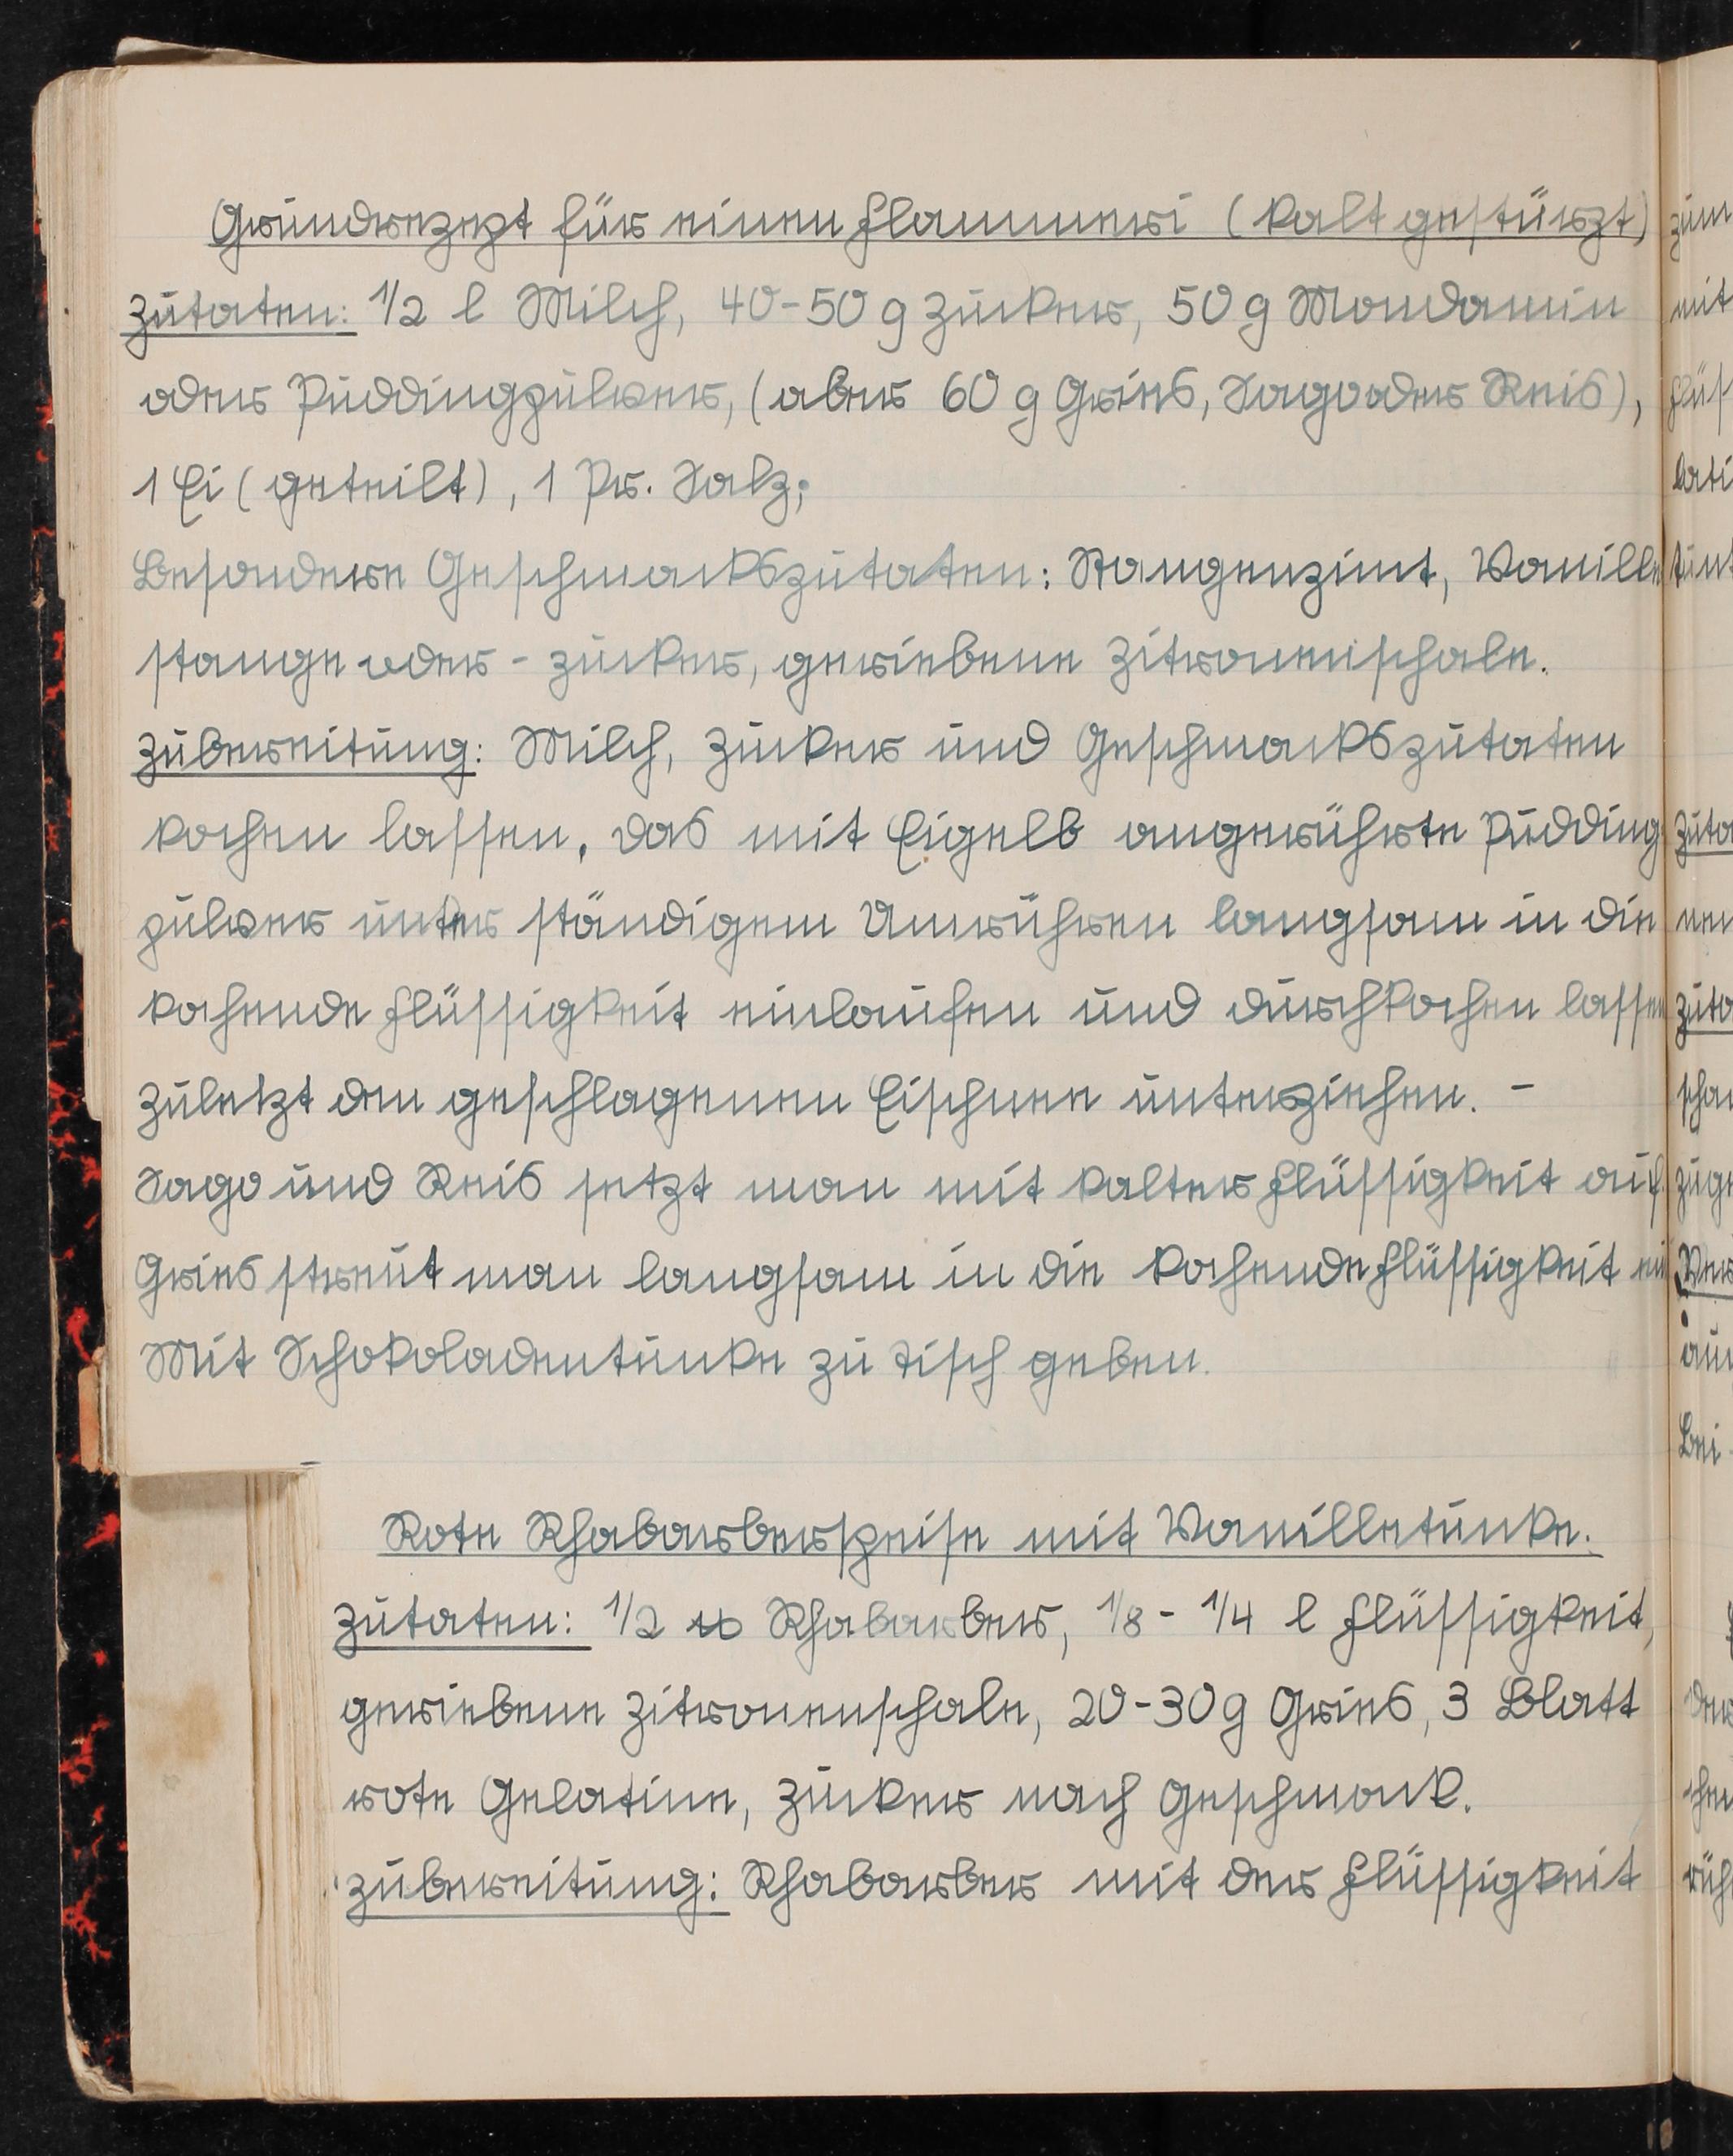 Grundrezept für einen Flammeri (kalt gestürzt)
Zutaten: 1/2 l Milch, 40-50 g Zucker, 50 g Mondamin
oder Puddingpulver, (aber 60 g Gries, Sago oder Reis),
1 Ei (geteilt), 1 Pr. Salz;
Besondere Geschmackszutaten: Stangenzimt, Vanille
stange oder - zucker, geriebene Zitronenschale.
Zubereitung: Milch, Zucker und Geschmackszutaten
kochen lassen, das mit Eigelb angerührte Pudding
pulver unter ständigem Umrühren langsam in die
kochende Flüssigkeit einlaufen und durchkochen lassen
Zuletzt den geschlagenen Eischnee unterziehen. -
Sago und Reis setzt man mit kalter Flüssigkeit auf.
Gries streut man langsam in die kochende Flüssigkeit ein
Mit Schokoladentunke zu Tisch geben.
Rote Rhabarberspeise mit Vanilletunke.
Zutaten: 1/2 ℔ Rhabarber, 1/8 - 1/4 l Flüssigkeit,
geriebene Zitronenschale, 20-30 g Gries, 3 Blatt
rote Gelatine, Zucker nach Geschmack.
Zubereitung: Rhabarber mit der Flüssigkeit
zum
mit